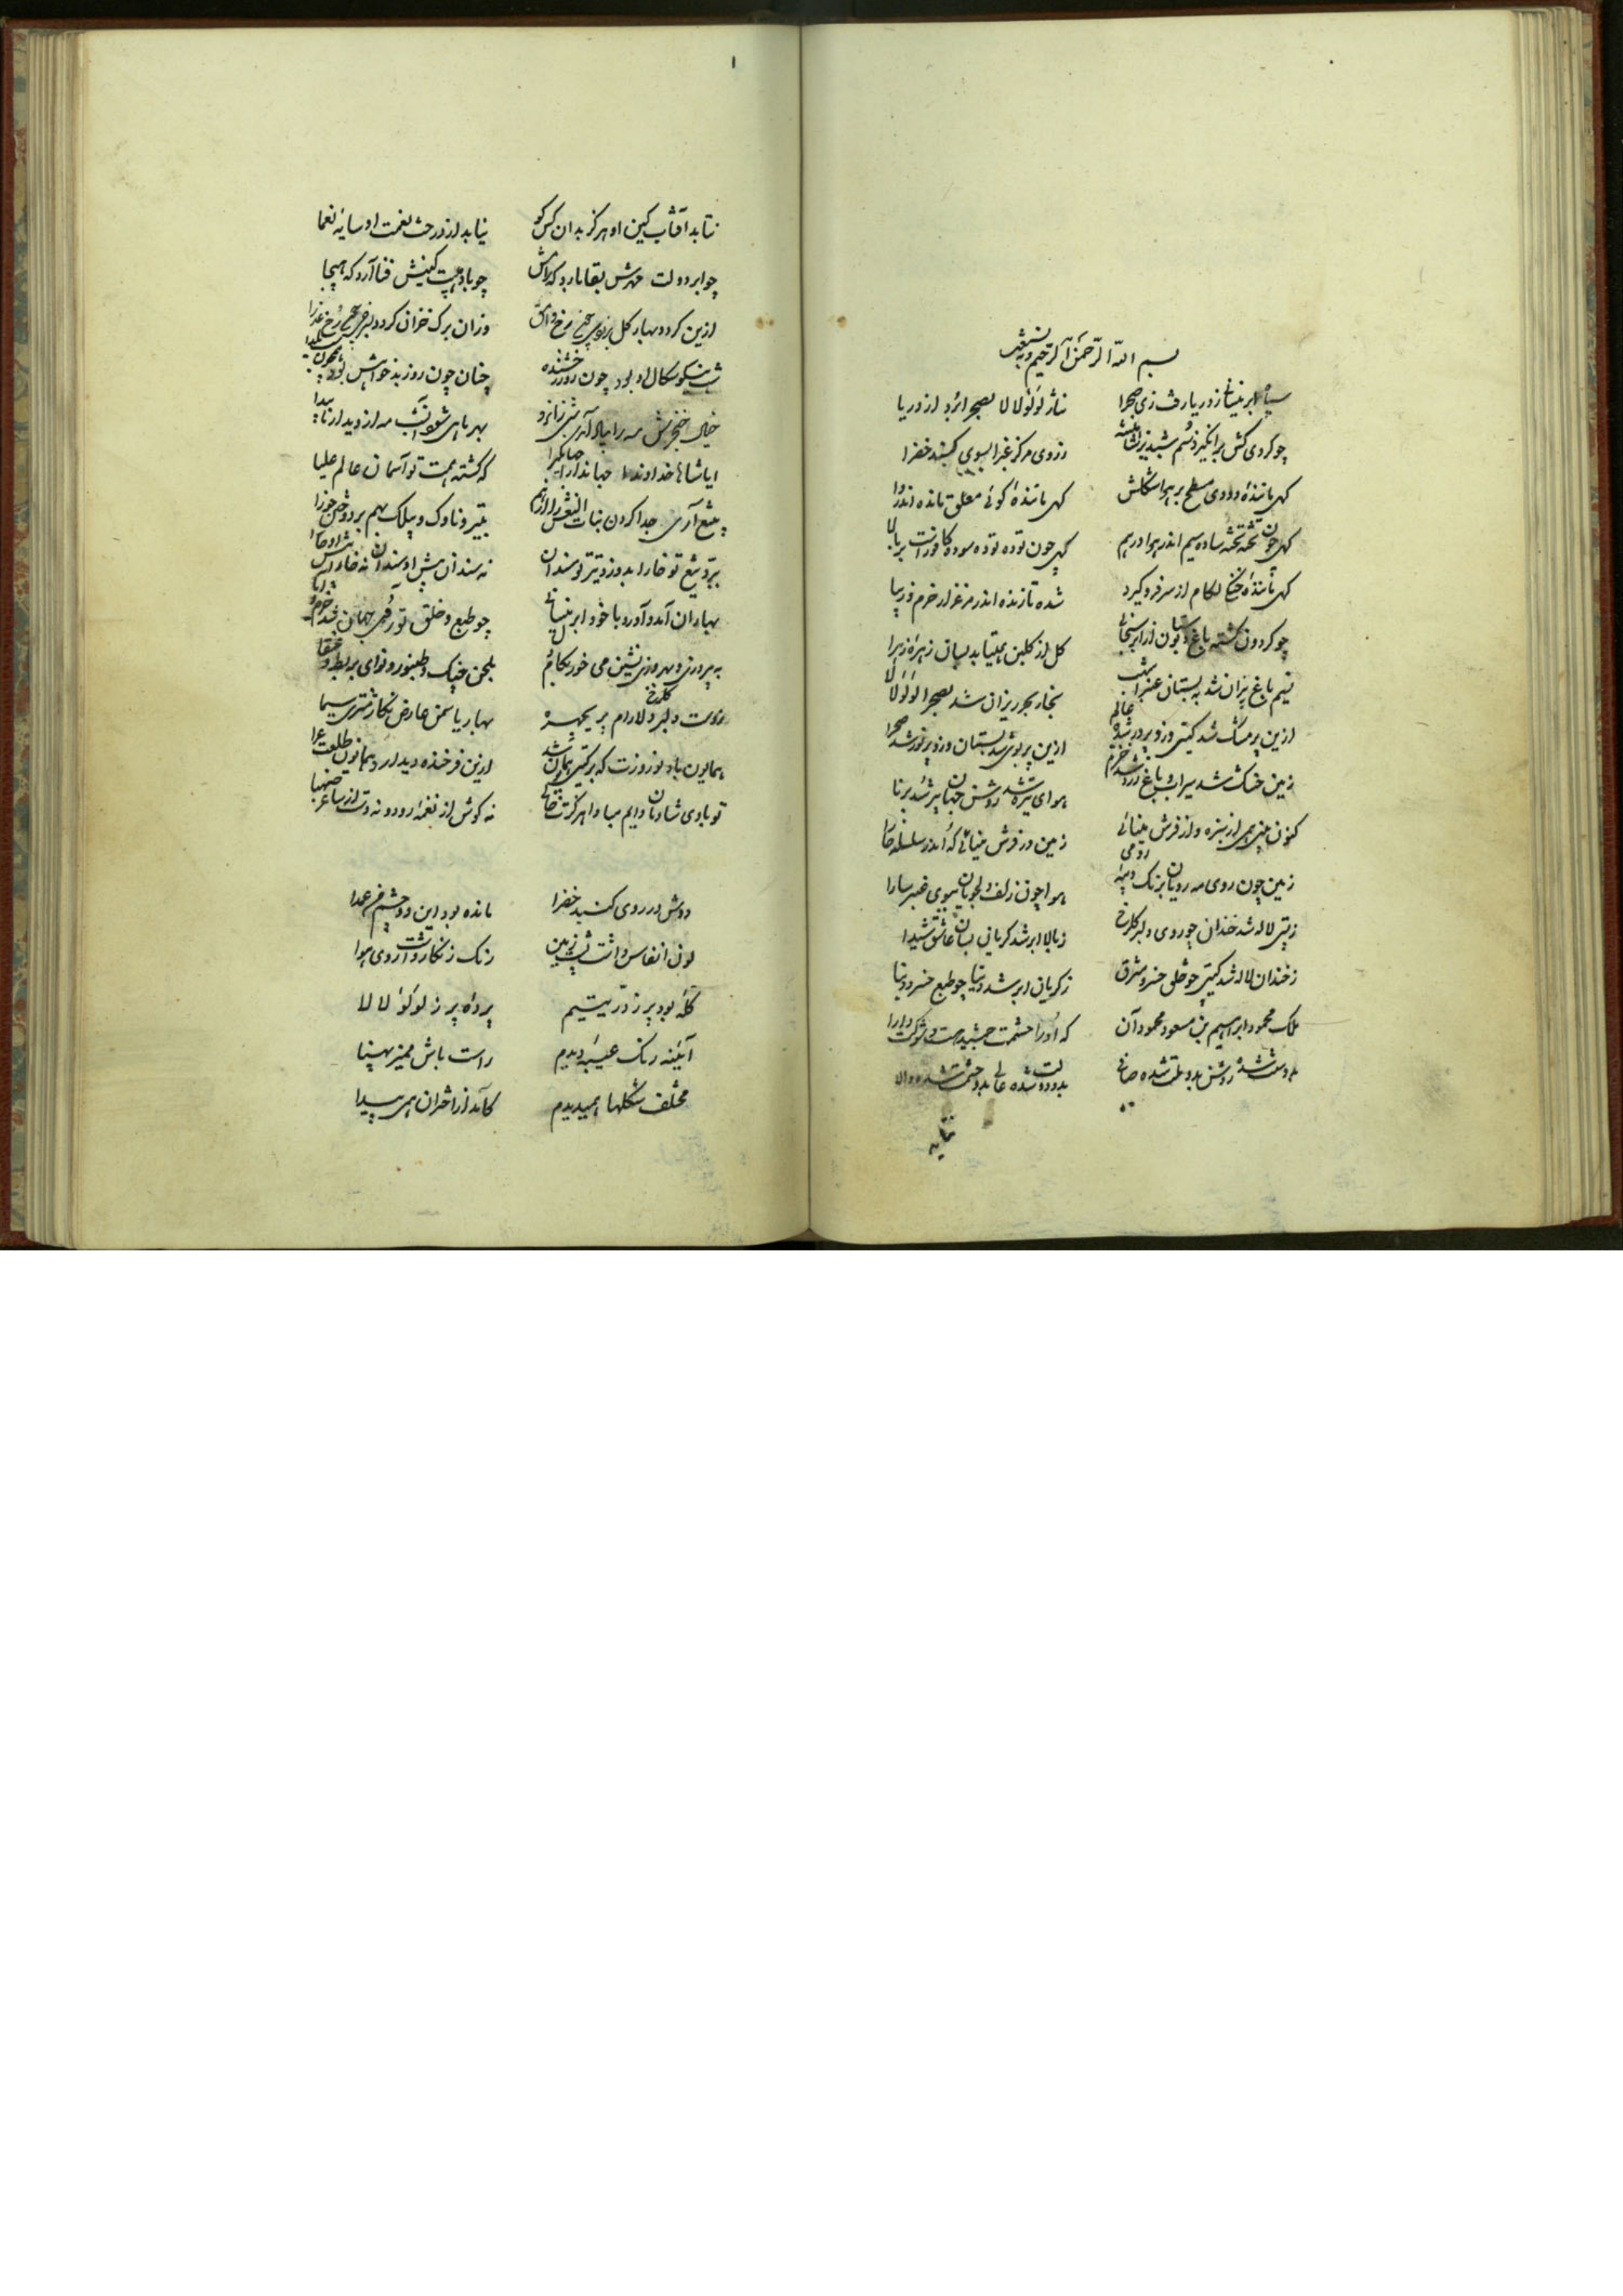 بسم الله الرحمن الرحیم وبه نستعین
سپاه ابر نیسانی ز دریا رفت زی صحرا نثار لؤلؤ لالا بصحرا برد از دریا
چو گردی کش برانگیزد سم شبدیز شاهنشه ز روی مرکز غبرا بسوی گنبد خضرا
گهی مانندهٔ دودی مسطح بر هوا شکلش گهی مانندهٔ کوئی معلق مانده اندروا
گهی چون تخته تخته ساده سیم اندر هوا درهم گهی چون توده توده سوده کافورست بر بالا
گهی مانندهٔ خنگ لگام از سر فرو کرده شده تازنده اندر مرغزار خرم و زیبا
چو گردون گشته باغ و بوستان از ابر نیسانی گل از گلبن همیتابد بسان زهرهٔ زهرا
نسیم باغ پران شد به بستان عنبر اشهب بخار بحر ریزان شد بصحرا لؤلؤ لالا
ازین پر مشک شد گیتی وزو پر در شده عالم ازین پر بوی شد بستان وزو پر نور شد صحرا
زمین خشک شد سیراب و باغ زرد شد خرم هوای تیره شد روشن جهان پیر شد برنا
کنون بینی همی از سبزه و از فرش مینائی زمین در فرش مینائی که اندر سلسله خا
زمین چون روی مه رویان برنگ دیبهٔ رومی هوا چون زلف دلجویان ببوی عنبر سارا
زمین لاله شد خندان چو روی دلبر گلرخ ز بالا ابر شد گریان بسان عاشق شیدا
ز خندان لاله شد گیتی چو خلق خسرو مشرق ز گریان ابر شد دنیا چو طبع خسرو دنیا
ملک محمود ابراهیم بن مسعود محمود آن که او را حشمت جمشید هست و شوکت دارا
بدو ملت شده روشن بدو ملت شده صافی بدو دولت شده عالی بدو حشمت شده والا
نتابد
۱
نتابد آفتاب کین او هرگز بدان کس کو نیابد از درخت نعمت او سایهٔ نعما
چو ابر دولت مهرش بقا بارد که رامش چو باد هیبت کینش فنا آرد که هیجا
ازین گردد بهار گل برنوی همچو رخ وامق وزان برگ خزان گردد بزردی همچو رخ عذرا
شب نیکو سگال او بود چون روز رخشنده چنان چون روز بدخواهش بود چون شب یلدا
خیال خنجرش مه را بماه آرد شبی زانرو بهر ماهی شود آن شب مه از دیدار ناپیدا
ایا شاها خداوندا جهاندارا جهانگیرا که گشته همت تو آسمان عالم علیا
بتیغ آری جدا کردن بنات النعش را از هم بتیر و ناوک و بیلک بهم بر دوختن جوزا
ببرد تیغ تو خارا بدوزد تیر تو سندان نه سندان پیش او سندان نه خارا پیش او خارا
بهاران آمد و آورد با خود ابر نیسانی چو طبع و خلق تو گیتی جهان شد خرم و زیبا
به پیروزی و بهروزی نشین می خور بکام دل بلحن چنگ و طنبور و نوای بربط و عنقا
ز دست دلبر گلرخ دلارام پریچهره بهار یاسمن عارض نگار مشتری سیما
همایون باد نوروزت که بر گیتی همایون شد ازین فرخنده دیدار و همایون طلعت غرا
تو بادی شادمان دایم مبادا هرگزت خالی نه گوش از نغمهٔ رود و نه دست از ساغر صهبا
دوش در روی گنبد خضرا مانده بود این دو چشم من عمدا
لون انفاس داشت پشت زمین رنگ زنگار داشت روی هوا
کله بود پر ز در یتیم پرده پر ز لؤلؤ لالا
آینه رنگ عیبه دیدم راست باش ممیز پهنا
مختلف شکلها همیدیدم کامد از اختران همی پیدا